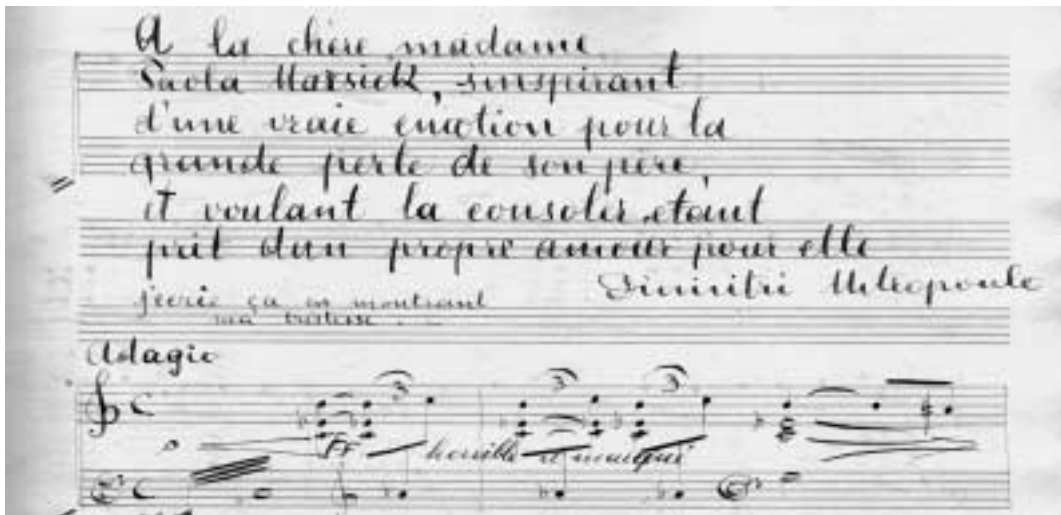 A la chère madame
Paola Marsick, s'inspirant
d'une vraie emotion pour la
grande perte de son père,
et voulant la consoler, etant
prit d'un propre amour pour elle
Dimitri Mitropoulo
j'ecris ça en montrant
ma tristesse . _
Adagio
3 3 3
ff horrible et marqué